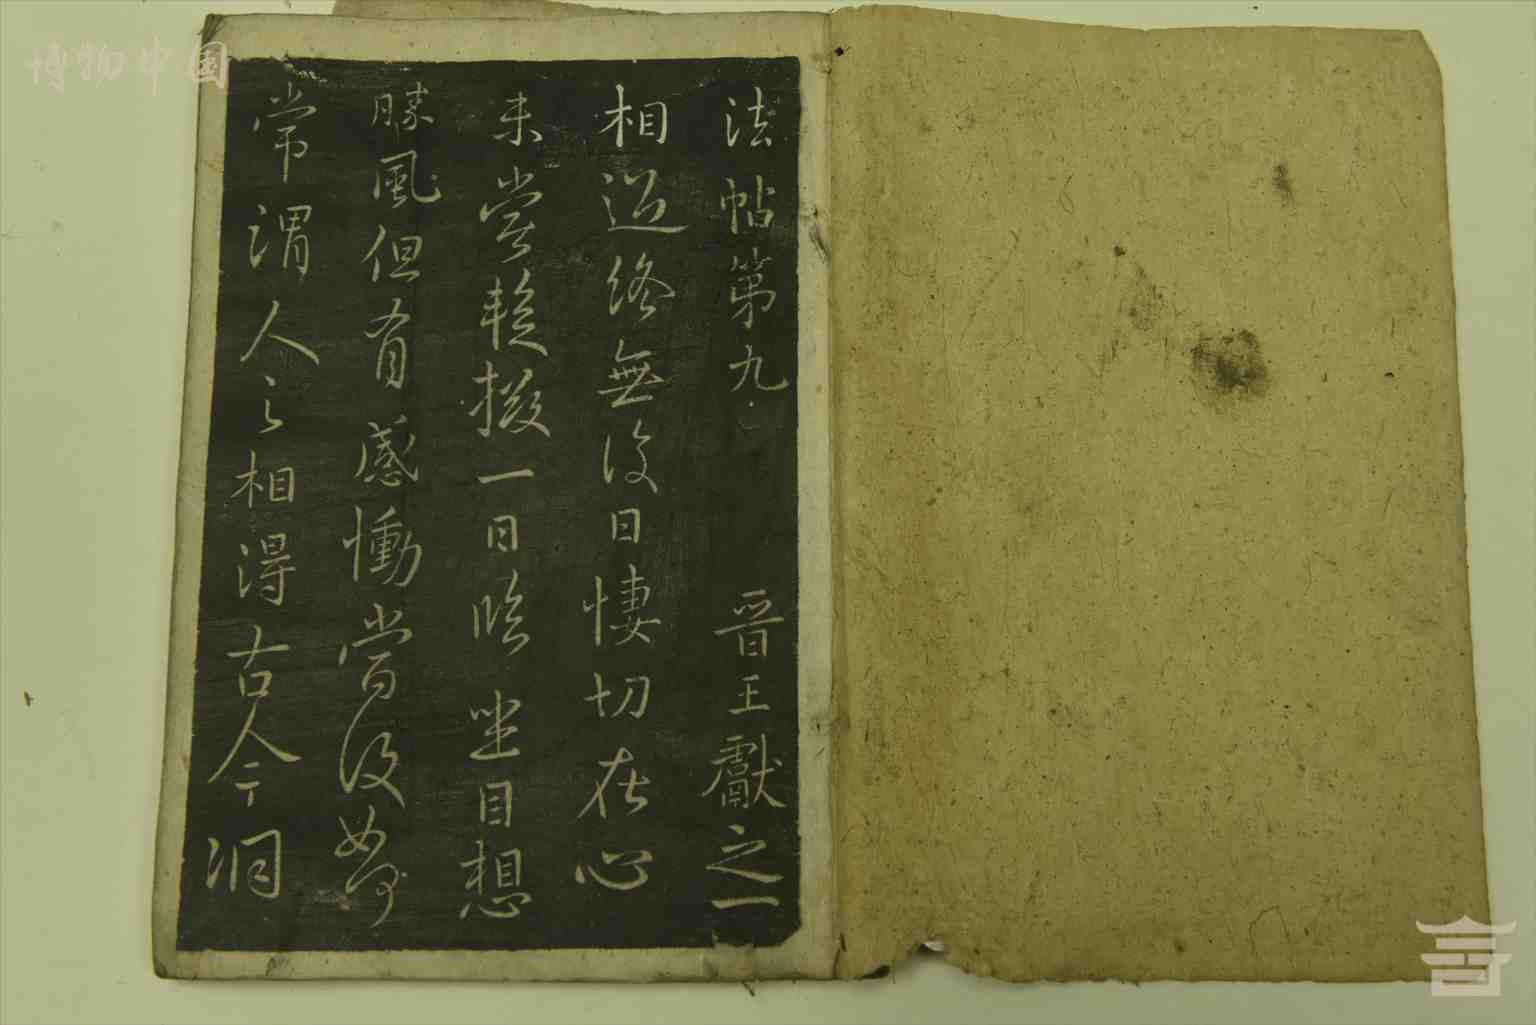 博物中国
法帖第九 晉王獻之一
相過終無復日悽切在心
未嘗暫掇一日臨坐目想
勝風但有感慟當復如何
常謂人之相得古今洞